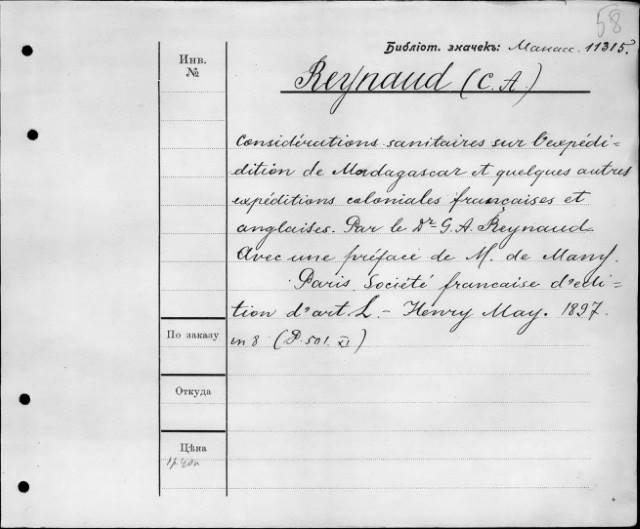 58
Библіот. значекъ: Манас. 11315.
Инв.
№
Reynaud (C. A.)
Considérations sanitaires sur l'expédi-
dition de Madagascar et quelques autres
expéditions coloniales françaises et
anglaises. Par le Dr G. A. Reynaud
Avec une préface de M. de Many.
Paris Société française d'edi-
tion d'art L. - Henry May. 1897.
По заказу
in 8 (P. 501. XI)
Откуда
Цѣна